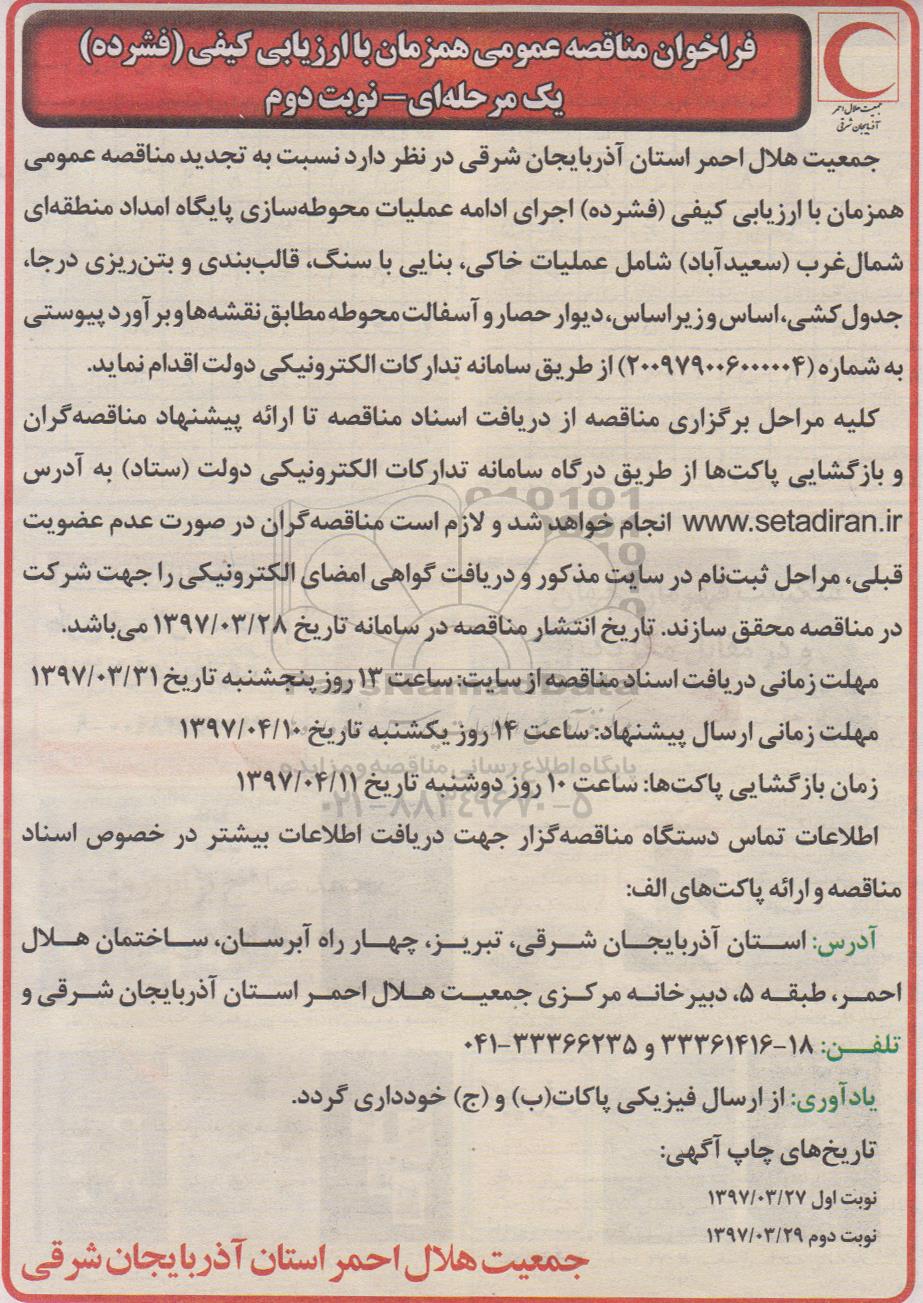 فراخوان مناقصه عمومی همزمان با ارزیابی کیفی (فشرده)
یک مرحله‌ای– نوبت دوم
جمعیت هلال احمر
آذربایجان شرقی
جمعیت هلال احمر استان آذربایجان شرقی در نظر دارد نسبت به تجدید مناقصه عمومی
همزمان با ارزیابی کیفی (فشرده) اجرای ادامه عملیات محوطه‌سازی پایگاه امداد منطقه‌ای
شمال‌غرب (سعیدآباد) شامل عملیات خاکی، بنایی با سنگ، قالب‌بندی و بتن‌ریزی درجا،
جدول‌کشی، اساس و زیراساس، دیوار حصار و آسفالت محوطه مطابق نقشه‌ها و برآورد پیوستی
به شماره (۲۰۰۹۷۹۰۰۶۰۰۰۰۰۴) از طریق سامانه تدارکات الکترونیکی دولت اقدام نماید.
کلیه مراحل برگزاری مناقصه از دریافت اسناد مناقصه تا ارائه پیشنهاد مناقصه‌گران
و بازگشایی پاکت‌ها از طریق درگاه سامانه تدارکات الکترونیکی دولت (ستاد) به آدرس
www.setadiran.ir انجام خواهد شد و لازم است مناقصه‌گران در صورت عدم عضویت
قبلی، مراحل ثبت‌نام در سایت مذکور و دریافت گواهی امضای الکترونیکی را جهت شرکت
در مناقصه محقق سازند. تاریخ انتشار مناقصه در سامانه تاریخ ۱۳۹۷/۰۳/۲۸ می‌باشد.
مهلت زمانی دریافت اسناد مناقصه از سایت: ساعت ۱۳ روز پنجشنبه تاریخ ۱۳۹۷/۰۳/۳۱
مهلت زمانی ارسال پیشنهاد: ساعت ۱۴ روز یکشنبه تاریخ ۱۳۹۷/۰۴/۱۰
زمان بازگشایی پاکت‌ها: ساعت ۱۰ روز دوشنبه تاریخ ۱۳۹۷/۰۴/۱۱
پایگاه اطلاع رسانی مناقصه و مزایده
۰۲۱-۸۸۳۴۹۶۷۰-۵
اطلاعات تماس دستگاه مناقصه‌گزار جهت دریافت اطلاعات بیشتر در خصوص اسناد
مناقصه و ارائه پاکت‌های الف:
آدرس: استان آذربایجان شرقی، تبریز، چهار راه آبرسان، ساختمان هلال
احمر، طبقه ۵، دبیرخانه مرکزی جمعیت هلال احمر استان آذربایجان شرقی و
تلفن: ۱۸-۳۳۳۶۱۴۱۶ و ۳۳۳۶۶۲۳۵-۰۴۱
یادآوری: از ارسال فیزیکی پاکات(ب) و (ج) خودداری گردد.
تاریخ‌های چاپ آگهی:
نوبت اول ۱۳۹۷/۰۳/۲۷
نوبت دوم ۱۳۹۷/۰۳/۲۹
جمعیت هلال احمر استان آذربایجان شرقی